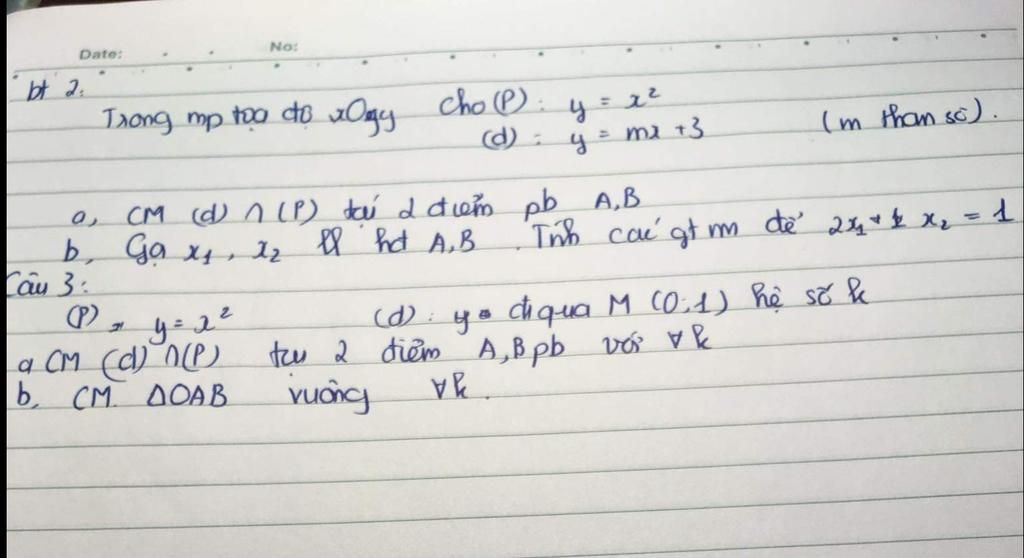 Date: No:
bt 2:
Trong mp tọa độ xOy Cho (P): y = x²
(d): y = mx + 3 (m tham số).
a, CM (d) ∩ (P) tại 2 điểm pb A,B
b, Gọi x₁, x₂ là hđ A,B. Tính các gt m để 2x₁ + x₂ = 1
Câu 3:
(P) y = x² (d): y đi qua M (0;1) hệ số k
a CM (d) ∩ (P) tại 2 điểm A,B pb với ∀k
b, CM. ΔOAB vuông ∀k.